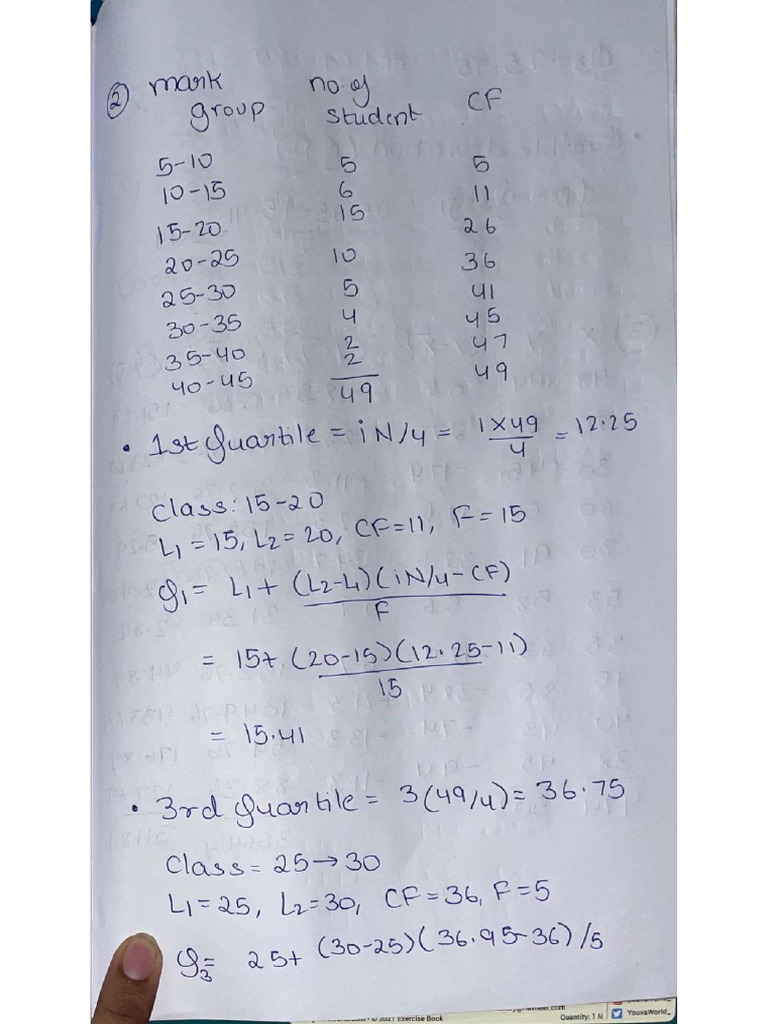 ② mark no. of CF
group student
5-10 5 5
10-15 6 11
15-20 15 26
20-25 10 36
25-30 5 41
30-35 4 45
35-40 2 47
40-45 2 49
49
• 1st Quartile = iN/4 = 1×49/4 = 12.25
Class: 15-20
L1 = 15, L2 = 20, CF=11, F = 15
Q1 = L1 + (L2-L1)(iN/4-CF)/F
= 15+ (20-15)(12.25-11)/15
= 15.41
• 3rd Quartile = 3(49/4) = 36.75
Class = 25→30
L1=25, L2=30, CF=36, F=5
Q3= 25+ (30-25)(36.95-36)/5
© 2021 Exercise Book Quantity: 1 N YouvaWorld_